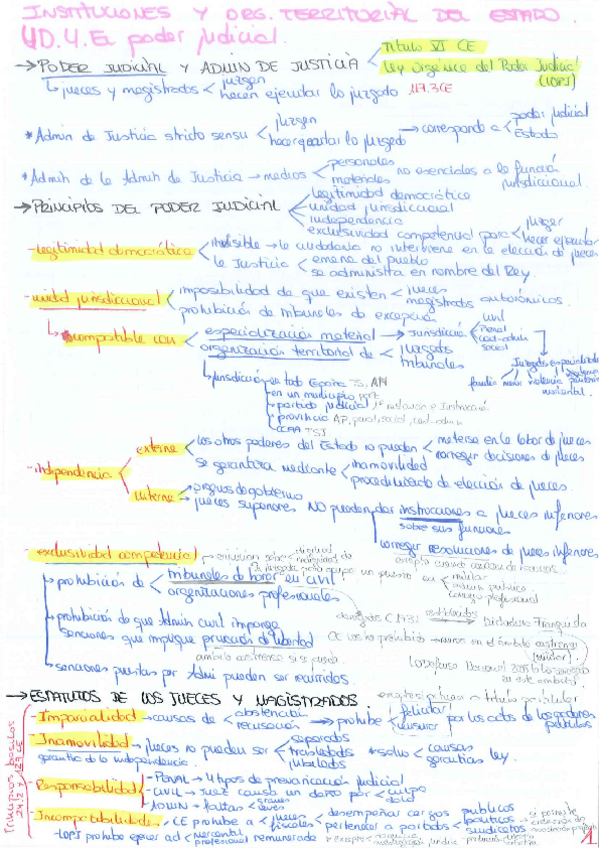 INSTITUCIONES Y ORG. TERRITORIAL DEL ESTADO.
UD.4. El poder judicial.
→ PODER JUDICIAL Y ADMIN DE JUSTICIA < Título VI CE
Ley Orgánica del Poder Judicial (LOPJ)
↳ jueces y magistrados < juzgan
hacen ejecutar lo juzgado 117.3CE
*Admin de Justicia stricto sensu < juzgan
hacer ejecutar lo juzgado → corresponde a < poder judicial
Estado
*Admin de la Admin de Justicia → medios < personales
materiales no esenciales a la función jurisdiccional.
→ PRINCIPIOS DEL PODER JUDICIAL < legitimidad democrática
unidad jurisdiccional
independencia
exclusividad competencial para < juzgar
hacer ejecutar
- legitimidad democrática < invisible → la ciudadanía no interviene en la elección de jueces
la Justicia < emana del pueblo
se administra en nombre del Rey.
- unidad jurisdiccional < imposibilidad de que existan < jueces
magistrados autonómicos.
prohibición de tribunales de excepción
↳ compatible con < especialización material → Jurisdicción < civil
penal
cont-admin
social
organización territorial de < juzgados
tribunales
Juzgados especializados
familia menor violencia
↳ jurisdicción en todo España TS, AN
en un municipio
partido judicial 1ª instancia e Instrucción
provincia AP, penal, social, cont-admin
CCAA TSJ
- independencia < externa < los otros poderes del Estado no pueden < meterse en la labor de jueces
corregir decisiones de jueces
se garantiza mediante < inamovilidad
procedimiento de elección de jueces.
interna < órganos de gobierno
jueces superiores NO pueden dar instrucciones a jueces inferiores
sobre sus funciones
corregir resoluciones de jueces inferiores
- exclusividad competencial
↳ prohibición de < tribunales de honor en civil
organizaciones profesionales
militar
admin pública
colegio profesional
Dictadura Franquista
↳ prohibición de que Admin civil imponga
sanciones que implique privación de libertad
ámbito castrense si se puede
CE los ha prohibido → menos en el ámbito castrense
(militar)
↳ sanciones puestas por Admi pueden ser recurridas.
→ ESTATUTOS DE LOS JUECES Y MAGISTRADOS.
Principios básicos
- Imparcialidad → causas de < abstención
recusación → prohíbe < felicitar
censurar por los actos de los poderes públicos
- Inamovilidad → jueces no pueden ser < separados
trasladados
jubilados *salvo < causas
garantías ley.
garantía de la independencia.
- Responsabilidad < PENAL → 4 tipos de prevaricación judicial
CIVIL → Juez causa un daño por < culpa
dolo
ADMIN → faltas < graves
leves
- Incompatibilidades → CE prohíbe a < jueces
fiscales < desempeñar cargos públicos
pertenecer a partidos < políticos
sindicatos
- LOPJ prohíbe ejercer act < mercantil
profesional remunerada
1